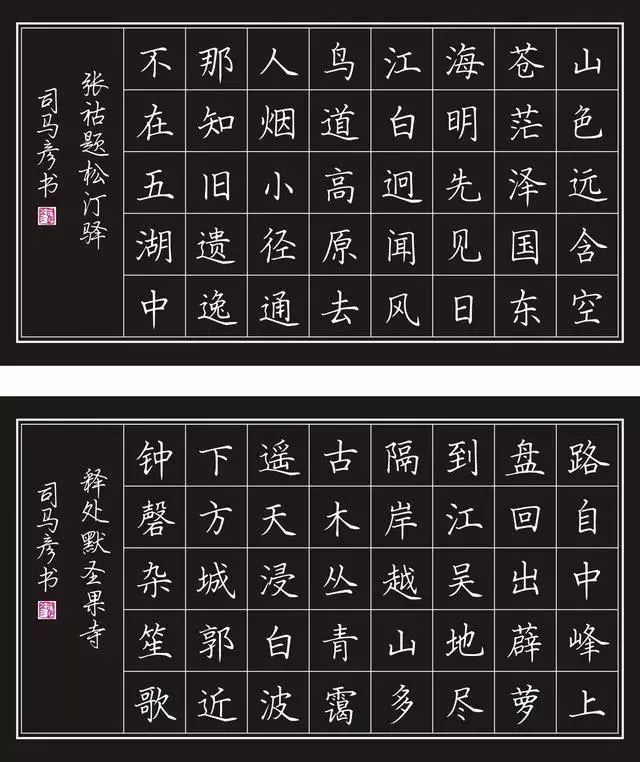 山色远含空
苍茫泽国东
海明先见日
江白迥闻风
鸟道高原去
人烟小径通
那知旧遗逸
不在五湖中
张祜题松汀驿
司马彦书
路自中峰上
盘回出薜萝
到江吴地尽
隔岸越山多
古木丛青霭
遥天浸白波
下方城郭近
钟磬杂笙歌
释处默圣果寺
司马彦书